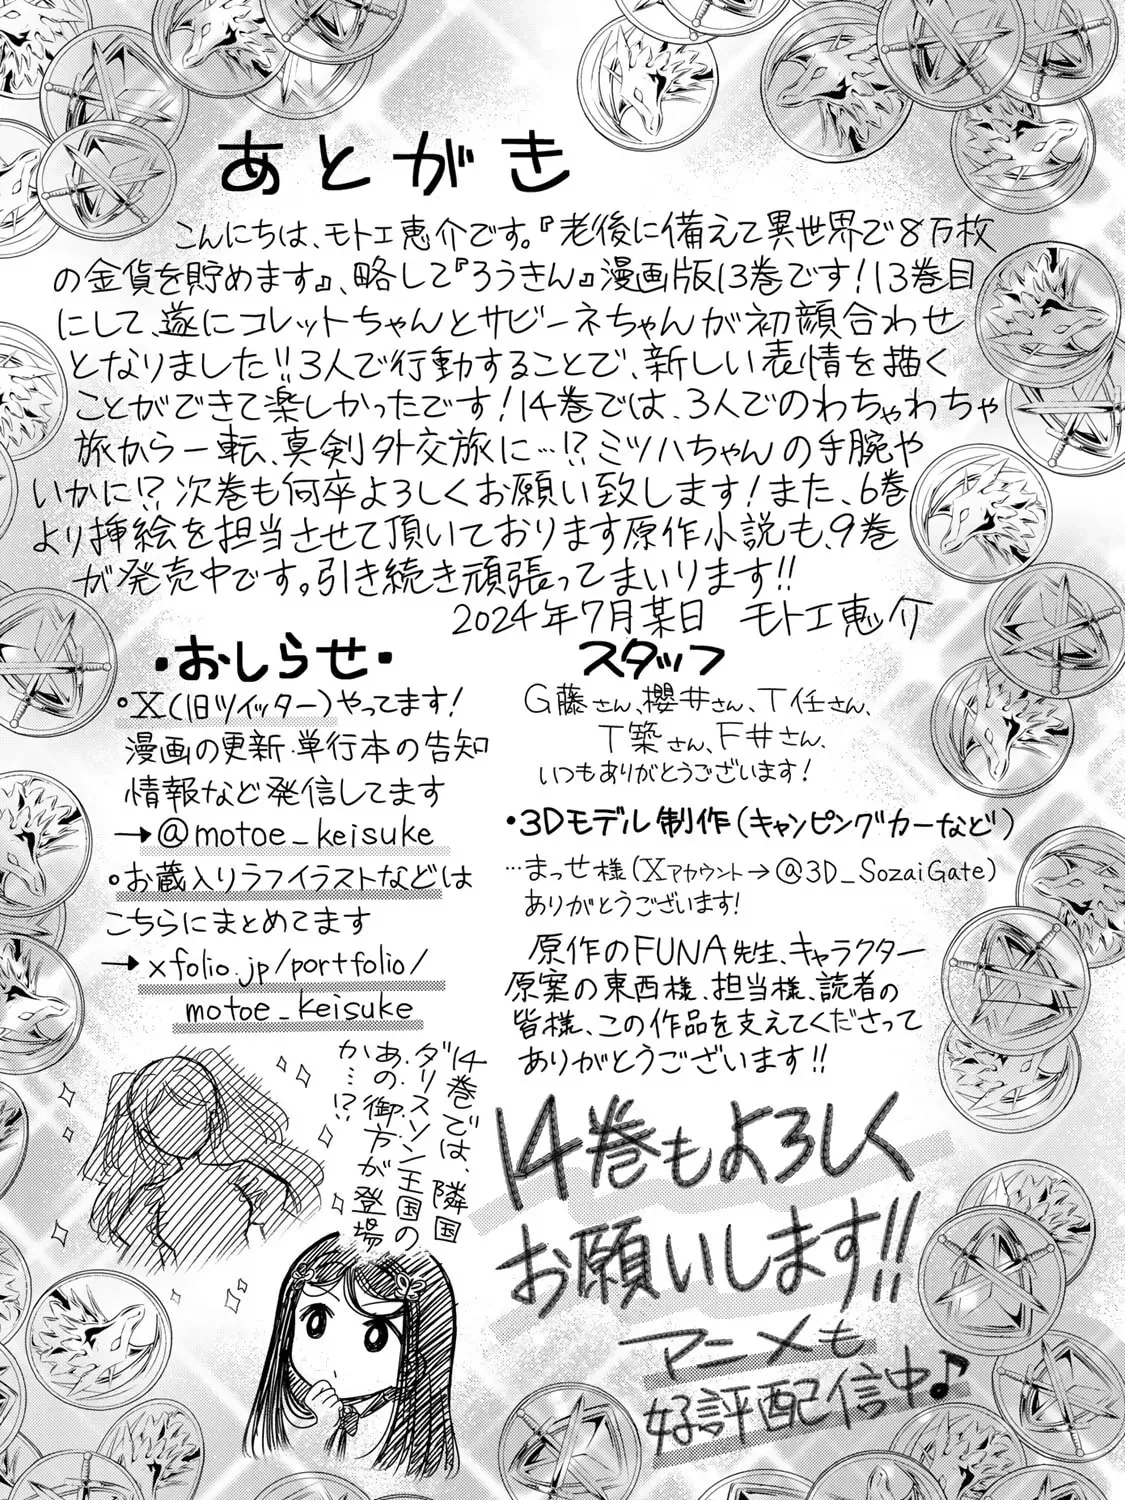 あとがき
こんにちは、モトエ恵介です。『老後に備えて異世界で8万枚
の金貨を貯めます』、略して『ろうきん』漫画版13巻です！13巻目
にして、遂にコレットちゃんとサビーネちゃんが初顔合わせ
となりました!!3人で行動することで、新しい表情を描く
ことができて楽しかったです！14巻では、3人でのわちゃわちゃ
旅から一転、真剣外交旅に…!?ミツハちゃんの手腕や
いかに!?次巻も何卒よろしくお願い致します！また、6巻
より挿絵を担当させて頂いております原作小説も、9巻
が発売中です。引き続き頑張ってまいります!!
2024年7月某日 モトエ恵介
・おしらせ・
。X(旧ツイッター)やってます！
漫画の更新・単行本の告知
情報など発信してます
→@motoe_keisuke
。お蔵入りラフイラストなどは
こちらにまとめてます
→xfolio.jp/portfolio/
motoe_keisuke
スタッフ
G藤さん、櫻井さん、T任さん、
T築さん、F井さん、
いつもありがとうございます！
・3Dモデル制作(キャンピングカーなど)
…まっせ様(Xアカウント→@3D_SozaiGate)
ありがとうございます！
原作のFUNA先生、キャラクター
原案の東西様、担当様、読者の
皆様、この作品を支えてくださって
ありがとうございます!!
14巻では、隣国
ダリスソン王国の
あの御方が登場
か…!?
14巻もよろしく
お願いします!!
アニメも
好評配信中♪